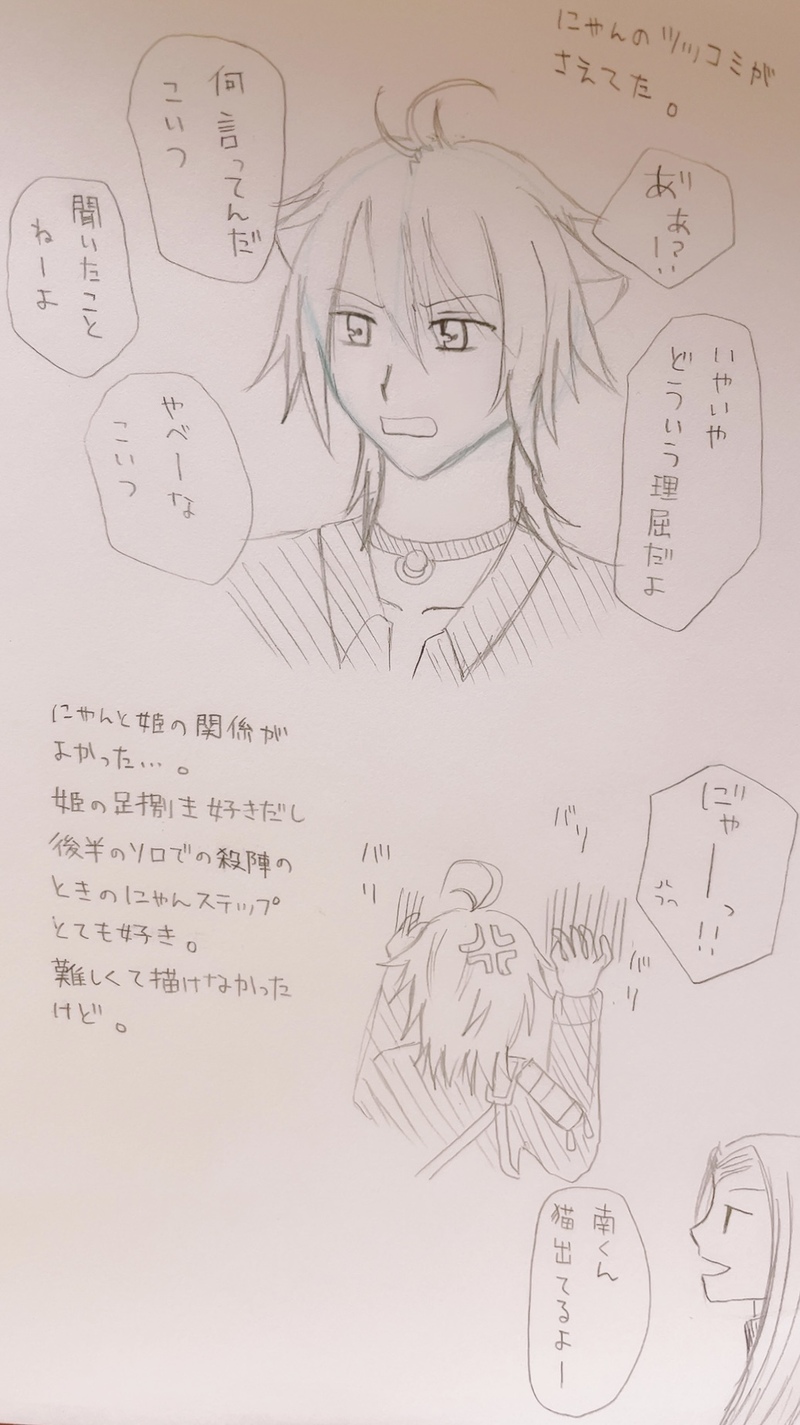 にゃんのツッコミが
さえてた。
あ゛ぁ?!
いやいや
どういう理屈だよ
何言ってんだ
こいつ
聞いたこと
ねーよ
やべーな
こいつ
にゃんと姫の関係が
よかった…。
姫の足捌き好きだし
後半のソロでの殺陣の
ときのにゃんステップ
とても好き。
難しくて描けなかった
けど。
に゛ゃーっ!!
バリ
バリ
バリ
南くん
猫出てるよー